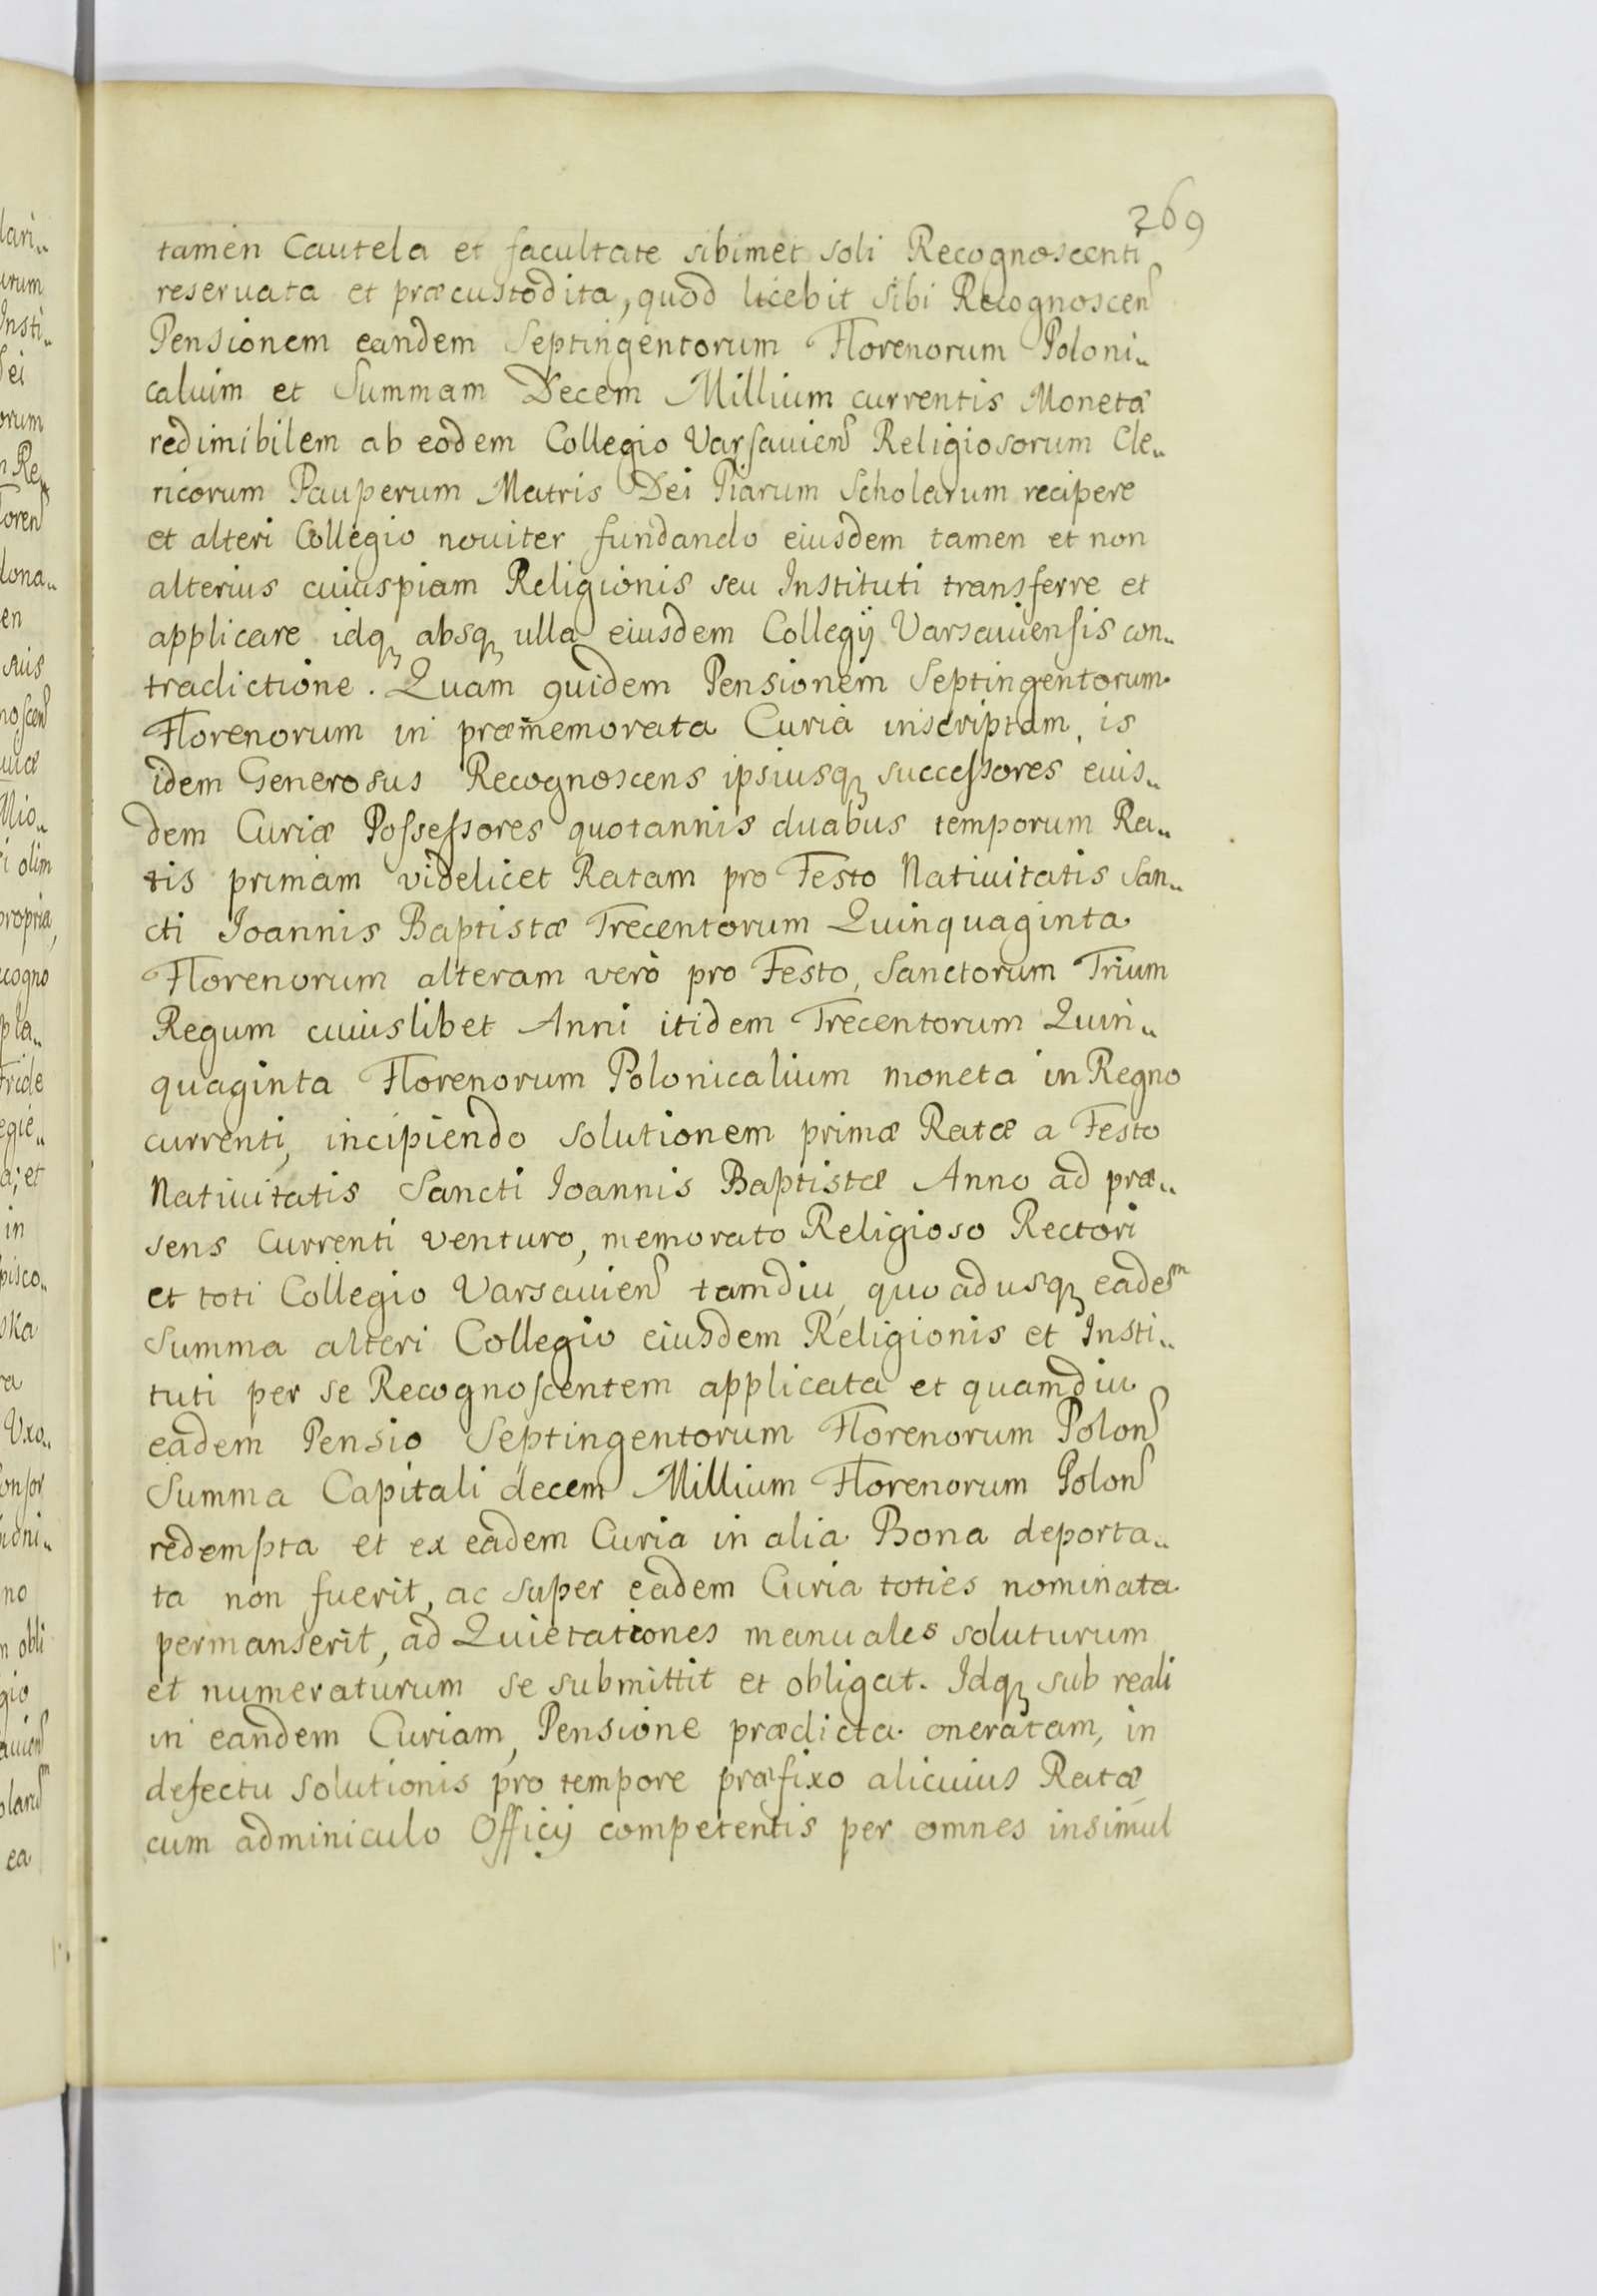 269
tamen Cautela et facultate sibimet soli Recognoscenti
reseruata et præcustodita, quod licebit sibi Recognoscen
Pensionem eandem Septingentorum Florenorum Poloni„
caluim et Summam Decem Millium currentis Monetæ
redimibilem ab eodem Collegio Varſauien Religiosorum Cle„
ricorum Pauperum Matris Dei Piarum Scholarum recipere
et alteri Collegio nouiter fundando eiusdem tamen et non
alterius cuiuspiam Religionis seu Instituti transferre et
applicare idq absq ulla eiusdem Collegÿ Varsauiensis con„
tradictione. Quam quidem Pensionem Septingentorum
Florenorum in præmemorata Curia inscriptam, is
idem Generosus Recognoscens ipsiusq succeſsores eius„
dem Curiæ Poſseſsores quotannis duabus temporum Ra„
tis primam videlicet Ratam pro Festo Natiuitatis San„
cti Ioannis Baptistæ Trecentorum Quinquaginta
Florenorum alteram verò pro Festo, Sanctorum Trium
Regum cuiuslibet Anni itidem Trecentorum Quin„
quaginta Florenorum Polonicalium moneta in Regno
currenti, incipiendo solutionem primæ Ratæ a Festo
Natiuitatis Sancti Ioannis Baptistæ Anno ad præ„
sens currenti venturo, memorato Religioso Rectori
et toti Collegio Varsauien tamdiu, quoadusq eadem
Summa alteri Collegio eiusdem Religionis et Insti„
tuti per se Recognoſcentem applicata et quamdiu
eadem Pensio Septingentorum Florenorum Polon
Summa Capitali decem Millium Florenorum Polon
redempta et ex eadem Curia in alia Bona deporta„
ta non fuerit, ac super eadem Curia toties nominata
permanserit, ad Quietationes manuales soluturum
et numeraturum se submittit et obligat. Idq sub reali
in eandem Curiam, Pensione prædicta oneratam, in
defectu solutionis pro tempore præfixo alicuius Ratæ
cum adminiculo Officÿ competentis per omnes insimul